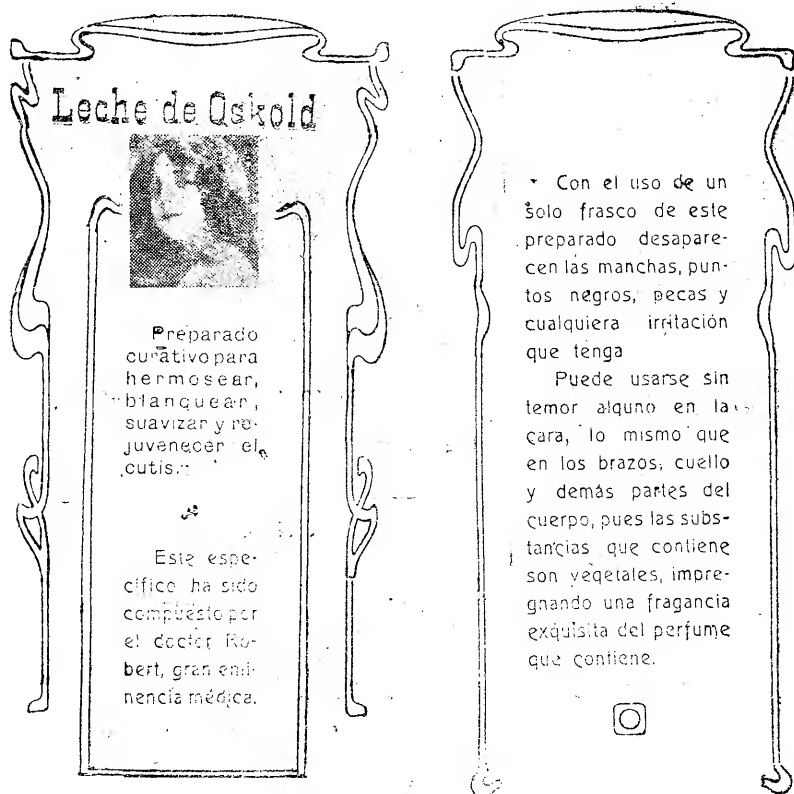 Leche de Oskold
Preparado
curativo para
hermosear,
blanquear,
suavizar y re-
juvenecer el
cutis.
Este espe-
cífico ha sido
compuesto por
el doctor Ro-
bert, gran emi-
nencia médica.
Con el uso de un
solo frasco de este
preparado desapare-
cen las manchas, pun-
tos negros, pecas y
cualquiera irritación
que tenga
Puede usarse sin
temor alguno en la
cara, lo mismo que
en los brazos, cuello
y demás partes del
cuerpo, pues las subs-
tancias que contiene
son vegetales, impre-
gnando una fragancia
exquisita del perfume
que contiene.